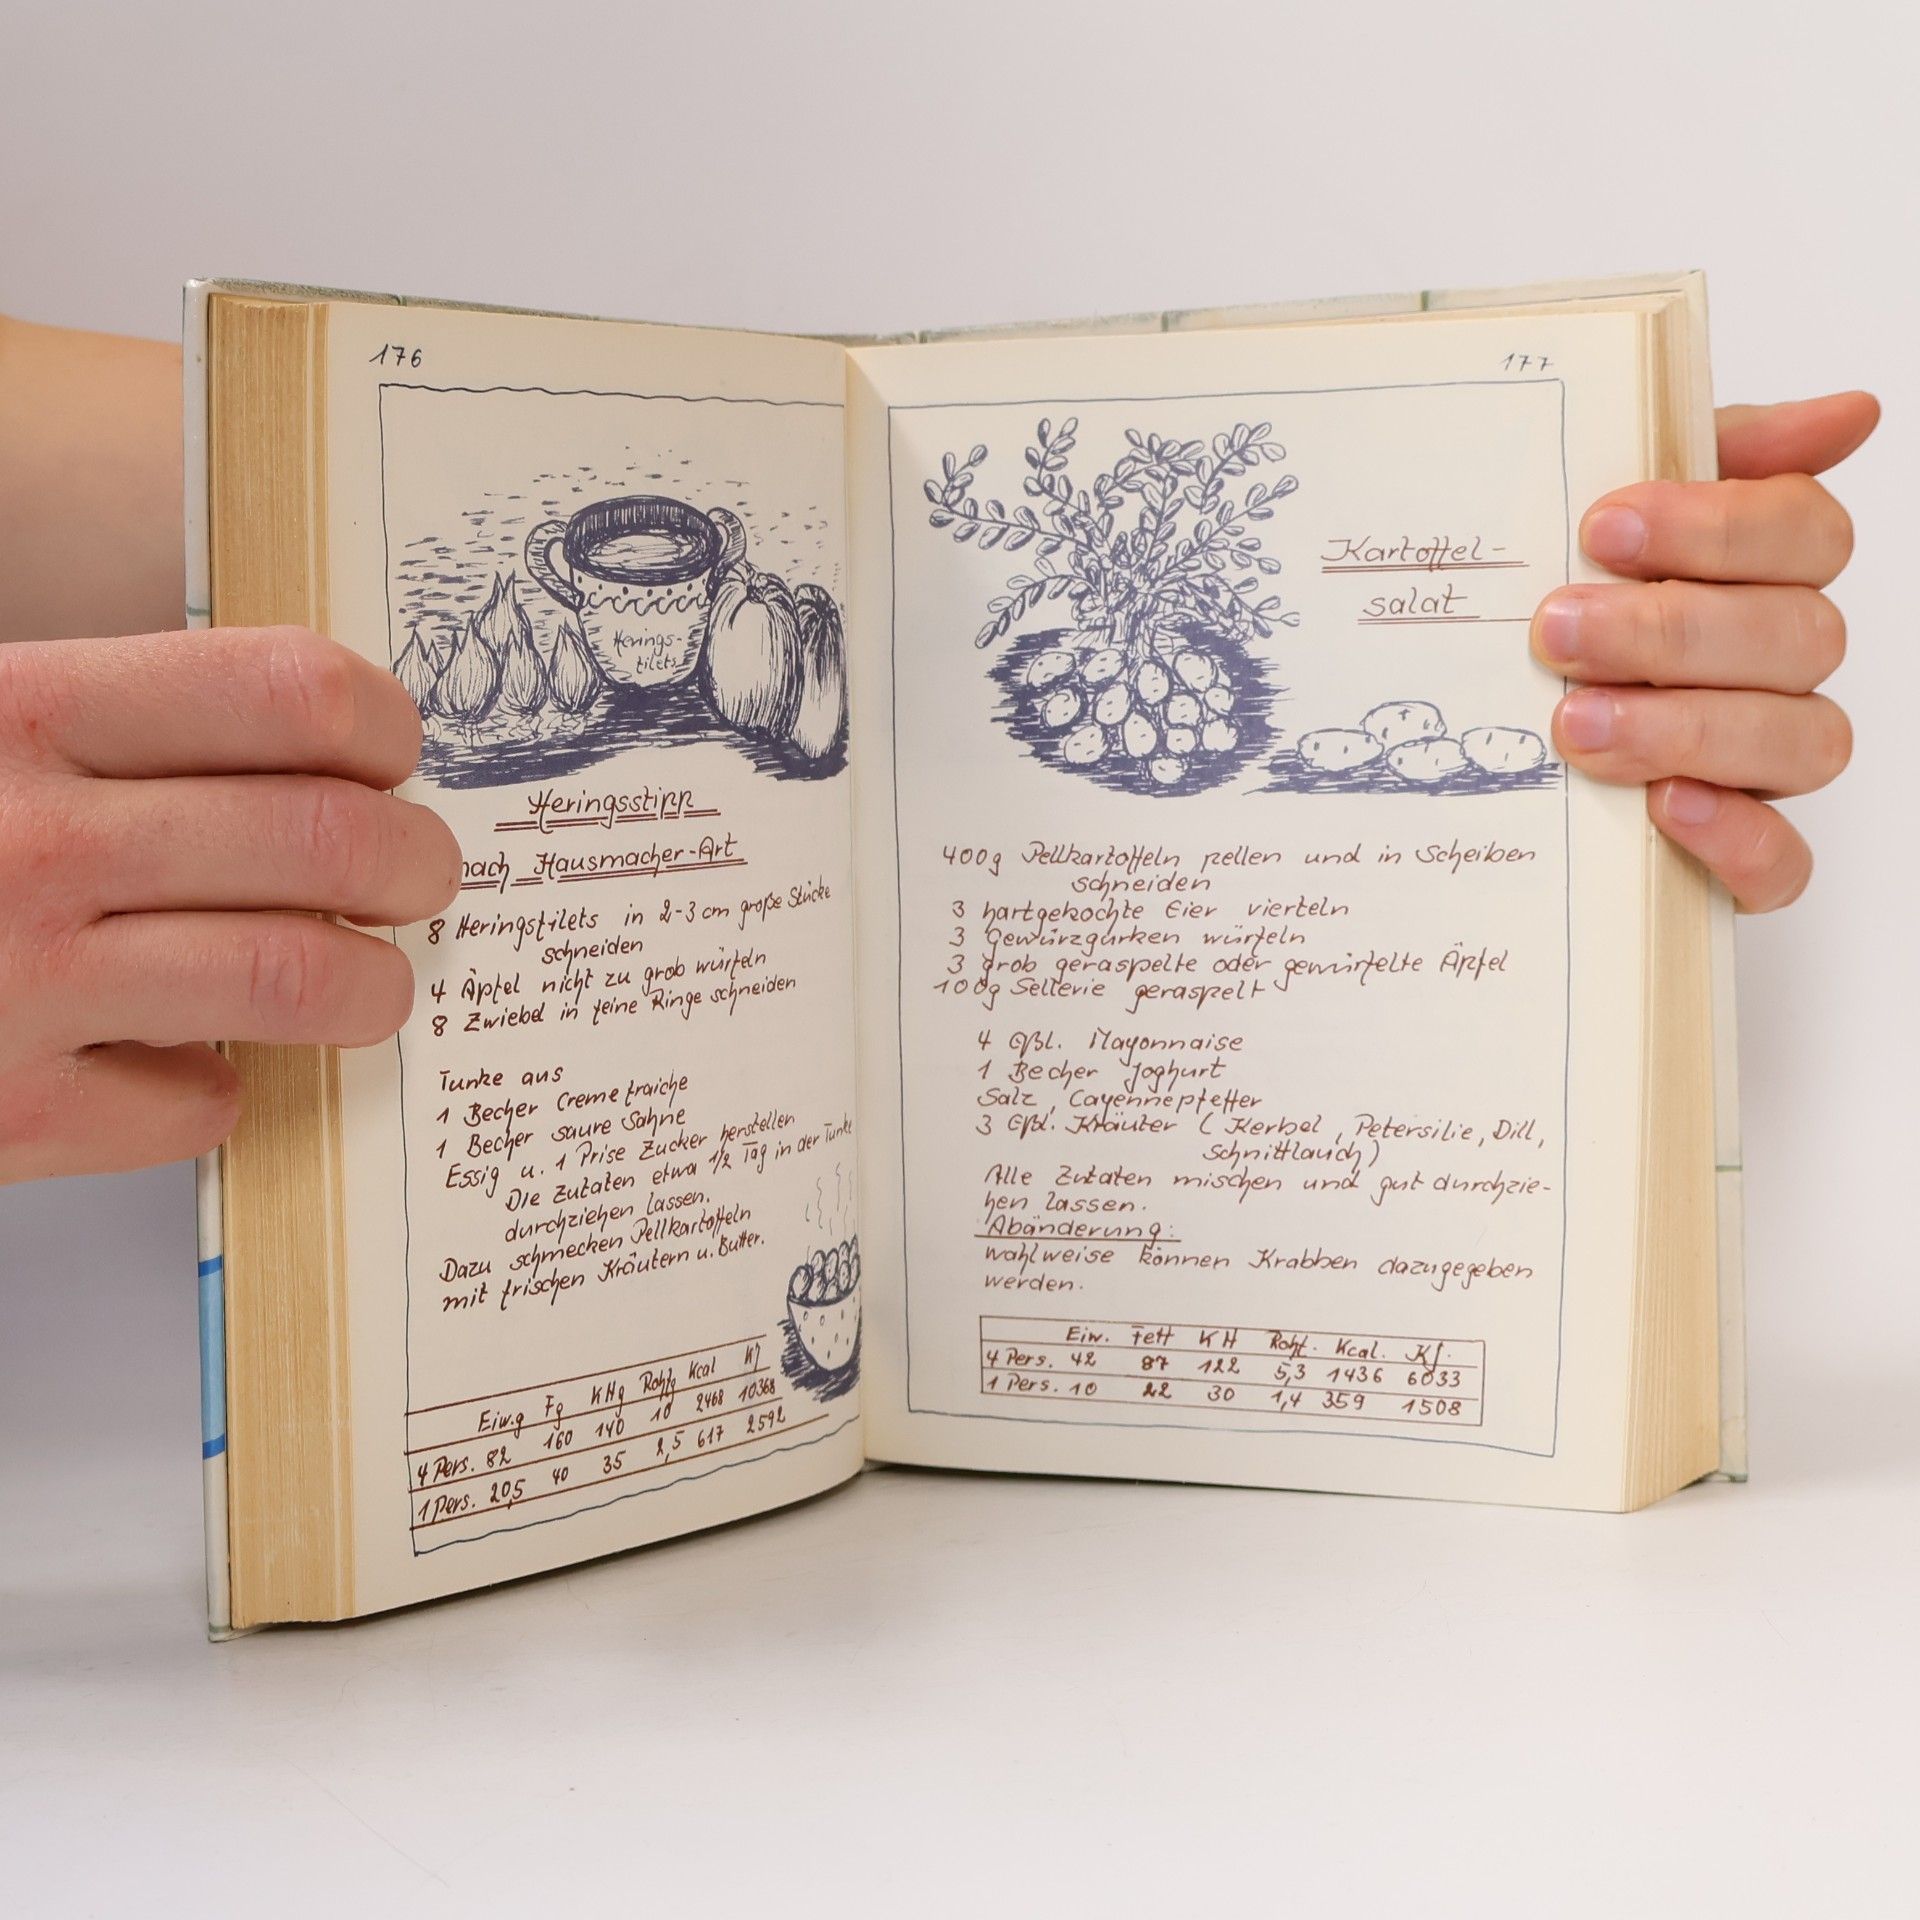 176
Herings-
filets
Heringsstipp
nach Hausmacher-Art
8 Heringsfilets in 2-3 cm große Stücke
schneiden
4 Äpfel nicht zu grob würfeln
8 Zwiebel in feine Ringe schneiden
Tunke aus
1 Becher Creme fraiche
1 Becher saure Sahne
Essig u. 1 Prise Zucker herstellen
Die Zutaten etwa 1/2 Tag in der Tunke
durchziehen lassen.
Dazu schmecken Pellkartoffeln
mit frischen Kräutern u. Butter.
Eiw.g Fg KHg Rohfg Kcal KJ
4 Pers. 82 160 140 10 2468 10368
1 Pers. 20,5 40 35 2,5 617 2592
177
Kartoffel-
salat
400g Pellkartoffeln pellen und in Scheiben
schneiden
3 hartgekochte Eier vierteln
3 Gewürzgurken würfeln
3 grob geraspelte oder gewürfelte Äpfel
100g Sellerie geraspelt
4 Eßl. Mayonnaise
1 Becher Joghurt
Salz, Cayennepfeffer
3 Eßl. Kräuter (Kerbel, Petersilie, Dill,
Schnittlauch)
Alle Zutaten mischen und gut durchzie-
hen lassen.
Abänderung:
wahlweise können Krabben dazugegeben
werden.
Eiw. Fett KH Rohf. Kcal. KJ.
4 Pers. 42 87 122 5,3 1436 6033
1 Pers. 10 22 30 1,4 359 1508